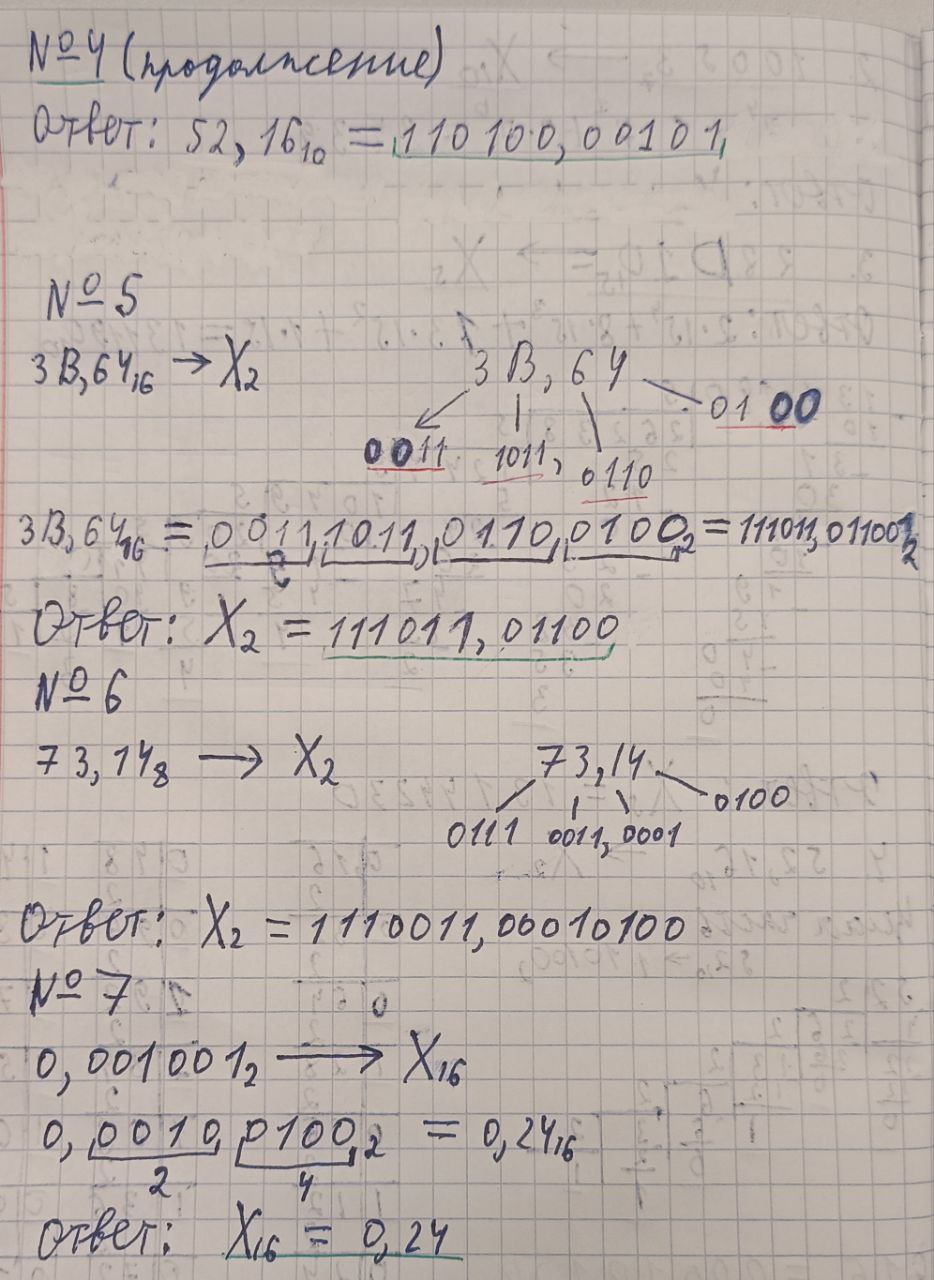 №4 (продолжение)
Ответ: 52,16₁₀ = 110100,00101
№5
3B,64₁₆ → X₂
3B,64
0011 1011, 0110 0100
3B,64₁₆ = 0011 1011, 0110 0100₂ = 111011,011001₂
Ответ: X₂ = 111011,01100
№6
73,14₈ → X₂
73,14
0111 0011, 0001 0100
Ответ: X₂ = 1110011,00010100
№7
0,001001₂ → X₁₆
0,0010 0100₂ = 0,24₁₆
2 4
Ответ: X₁₆ = 0,24